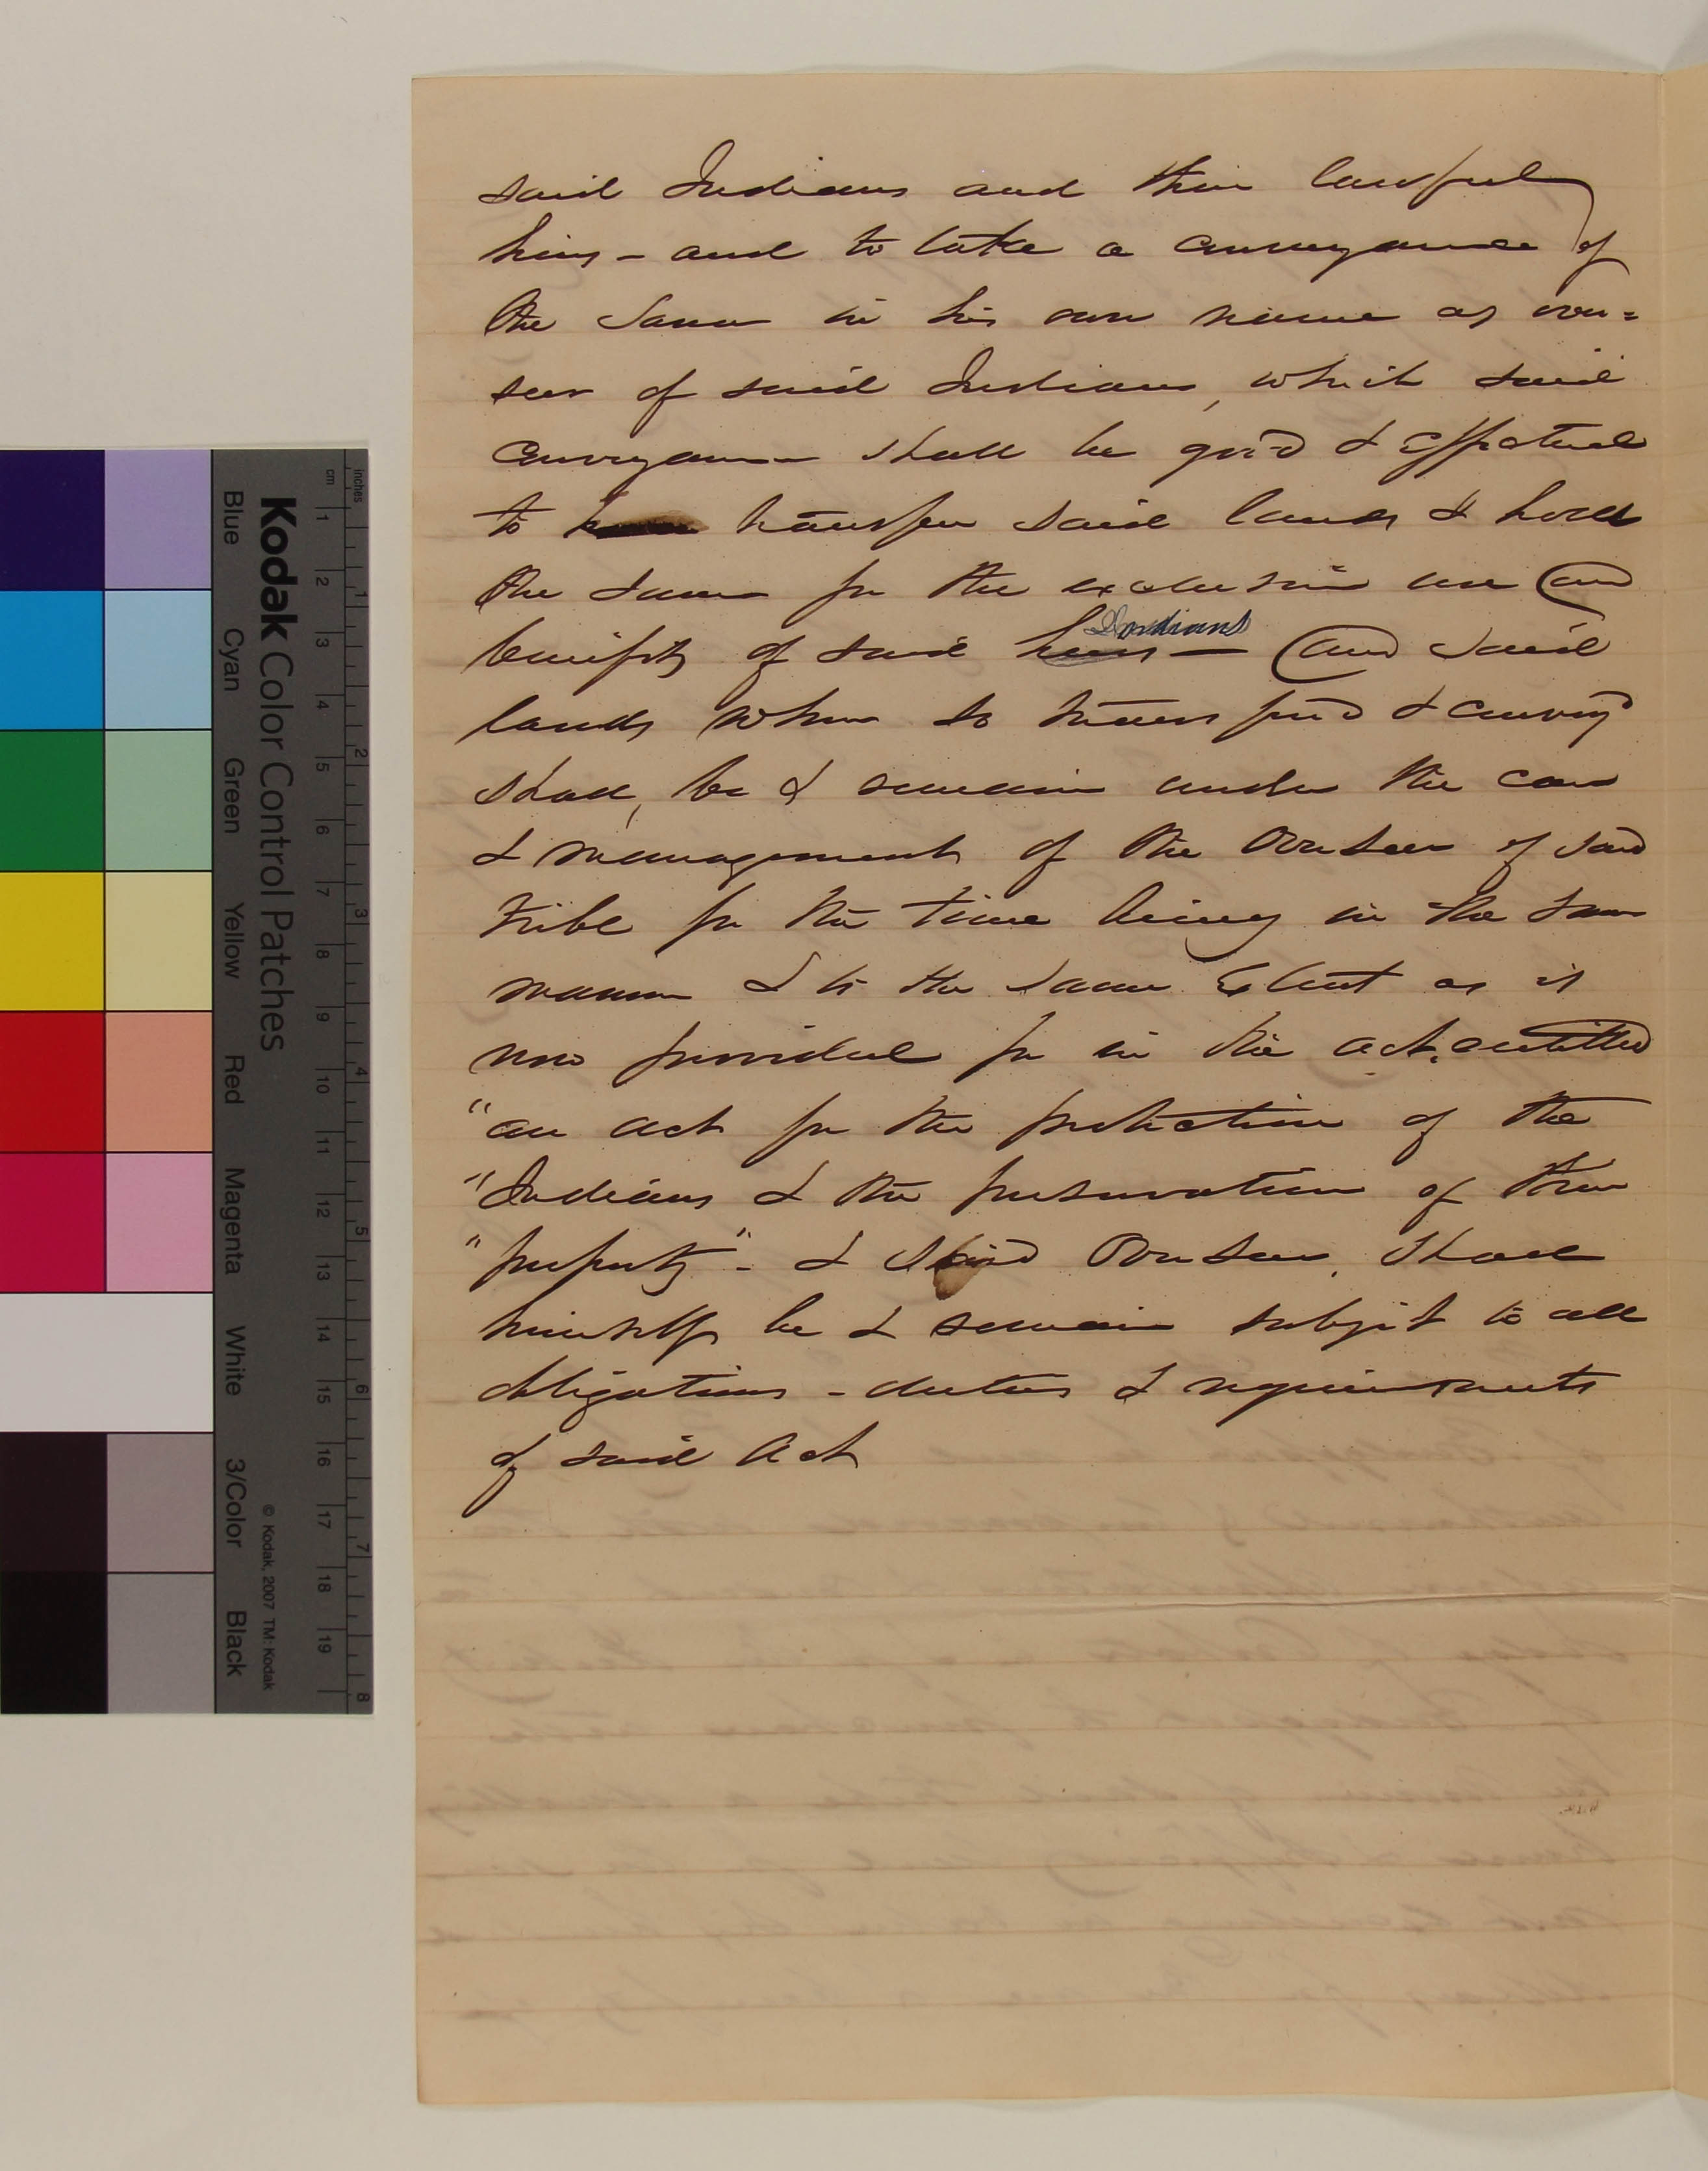 said Indians and their lawful
heirs - and to take a conveyance of
the same in his own name as over=
seer of said Indians, which said
conveyance shall be good & effectual
to transfer said lands & hold
the same for the exclusive use and
benifits of said heirs — Indians and said
lands when so transferd & conveyd
shall, be & remain under the care
& management of the Overseer of said
tribe for the time being in the same
manner & to the same Extent as is
now provided for in the act, entitled
"an act for the protection of the
"Indians & the preservation of their
"property" - & said Overseer, shall
himself be & remain subject to all
obligations - duties & requirements
of said Act
Kodak Color Control Patches
Blue Cyan Green Yellow Red Magenta White 3/Color Black
© Kodak, 2007 TM: Kodak
inches 1 2 3 4 5 6 7 8
cm 1 2 3 4 5 6 7 8 9 10 11 12 13 14 15 16 17 18 19